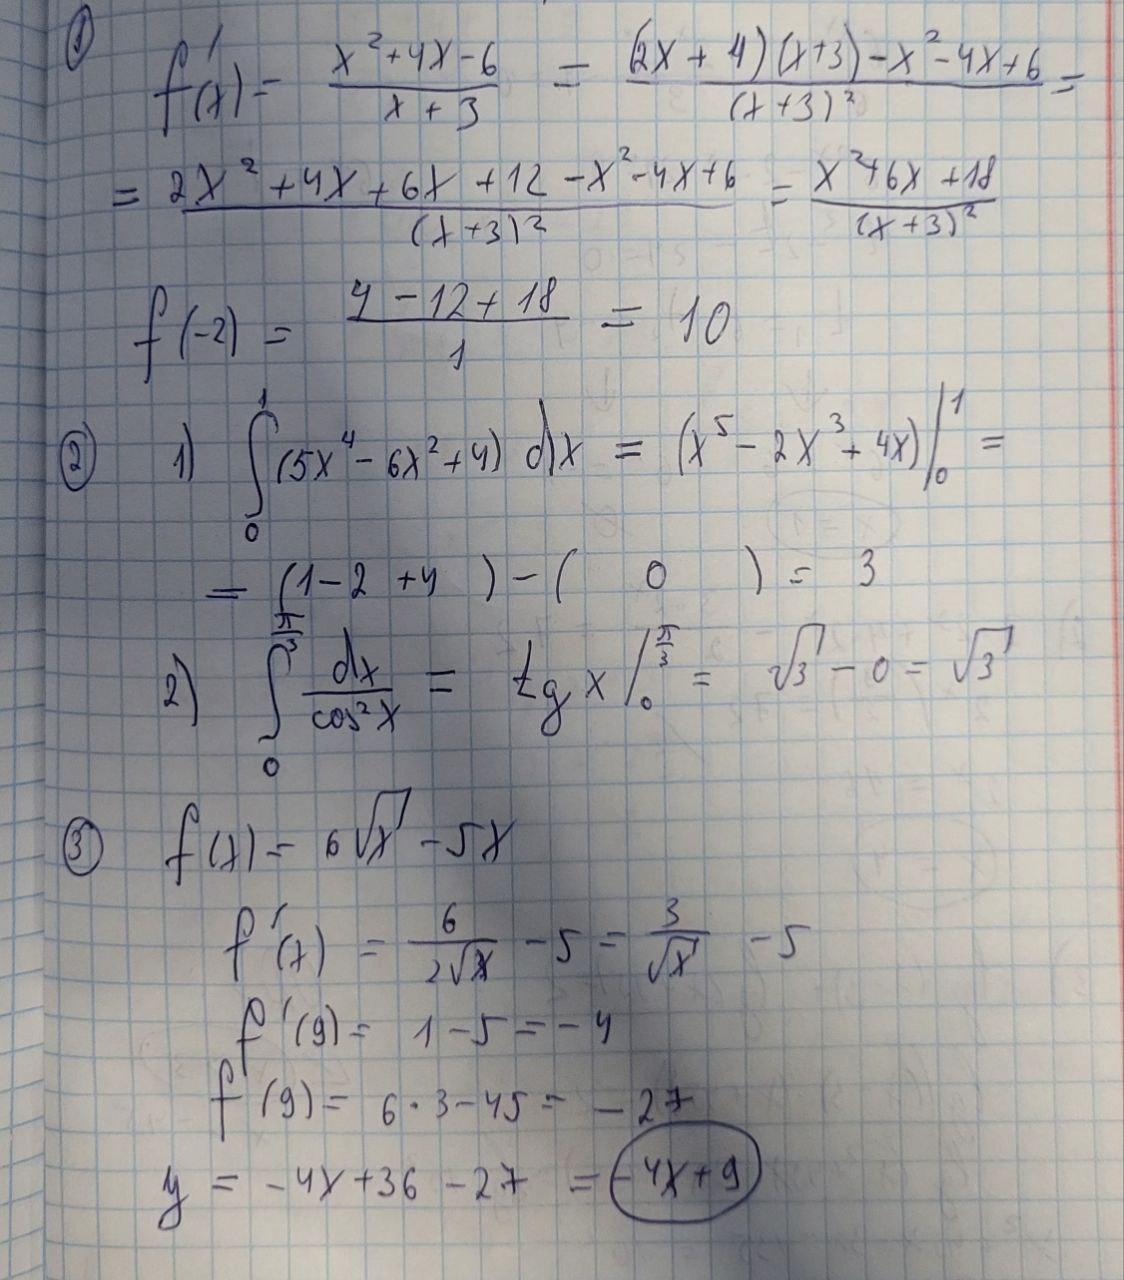 ① f'(x) = x² + 4x - 6 / x + 3 = (2x + 4)(x+3) - x² - 4x + 6 / (x+3)² =
= 2x² + 4x + 6x + 12 - x² - 4x + 6 / (x+3)² = x² + 6x + 18 / (x+3)²
f(-2) = 4 - 12 + 18 / 1 = 10
② 1) ∫₀¹ (5x⁴ - 6x² + 4) dx = (x⁵ - 2x³ + 4x) |₀¹ =
= (1 - 2 + 4 ) - ( 0 ) = 3
2) ∫₀^(π/3) dx / cos²x = tg x |₀^(π/3) = √3 - 0 = √3
③ f(x) = 6√x - 5x
f'(x) = 6 / 2√x - 5 = 3 / √x - 5
f'(9) = 1 - 5 = -4
f(9) = 6 · 3 - 45 = -27
y = -4x + 36 - 27 = -4x + 9